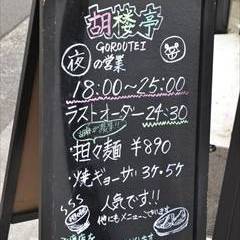 胡楼亭
GOROUTEI
夜の営業
18:00~25:00
ラストオーダー24:30
担々麺 ¥890
焼ギョーザ 3ケ・5ケ
人気です!!
他にもメニューございます